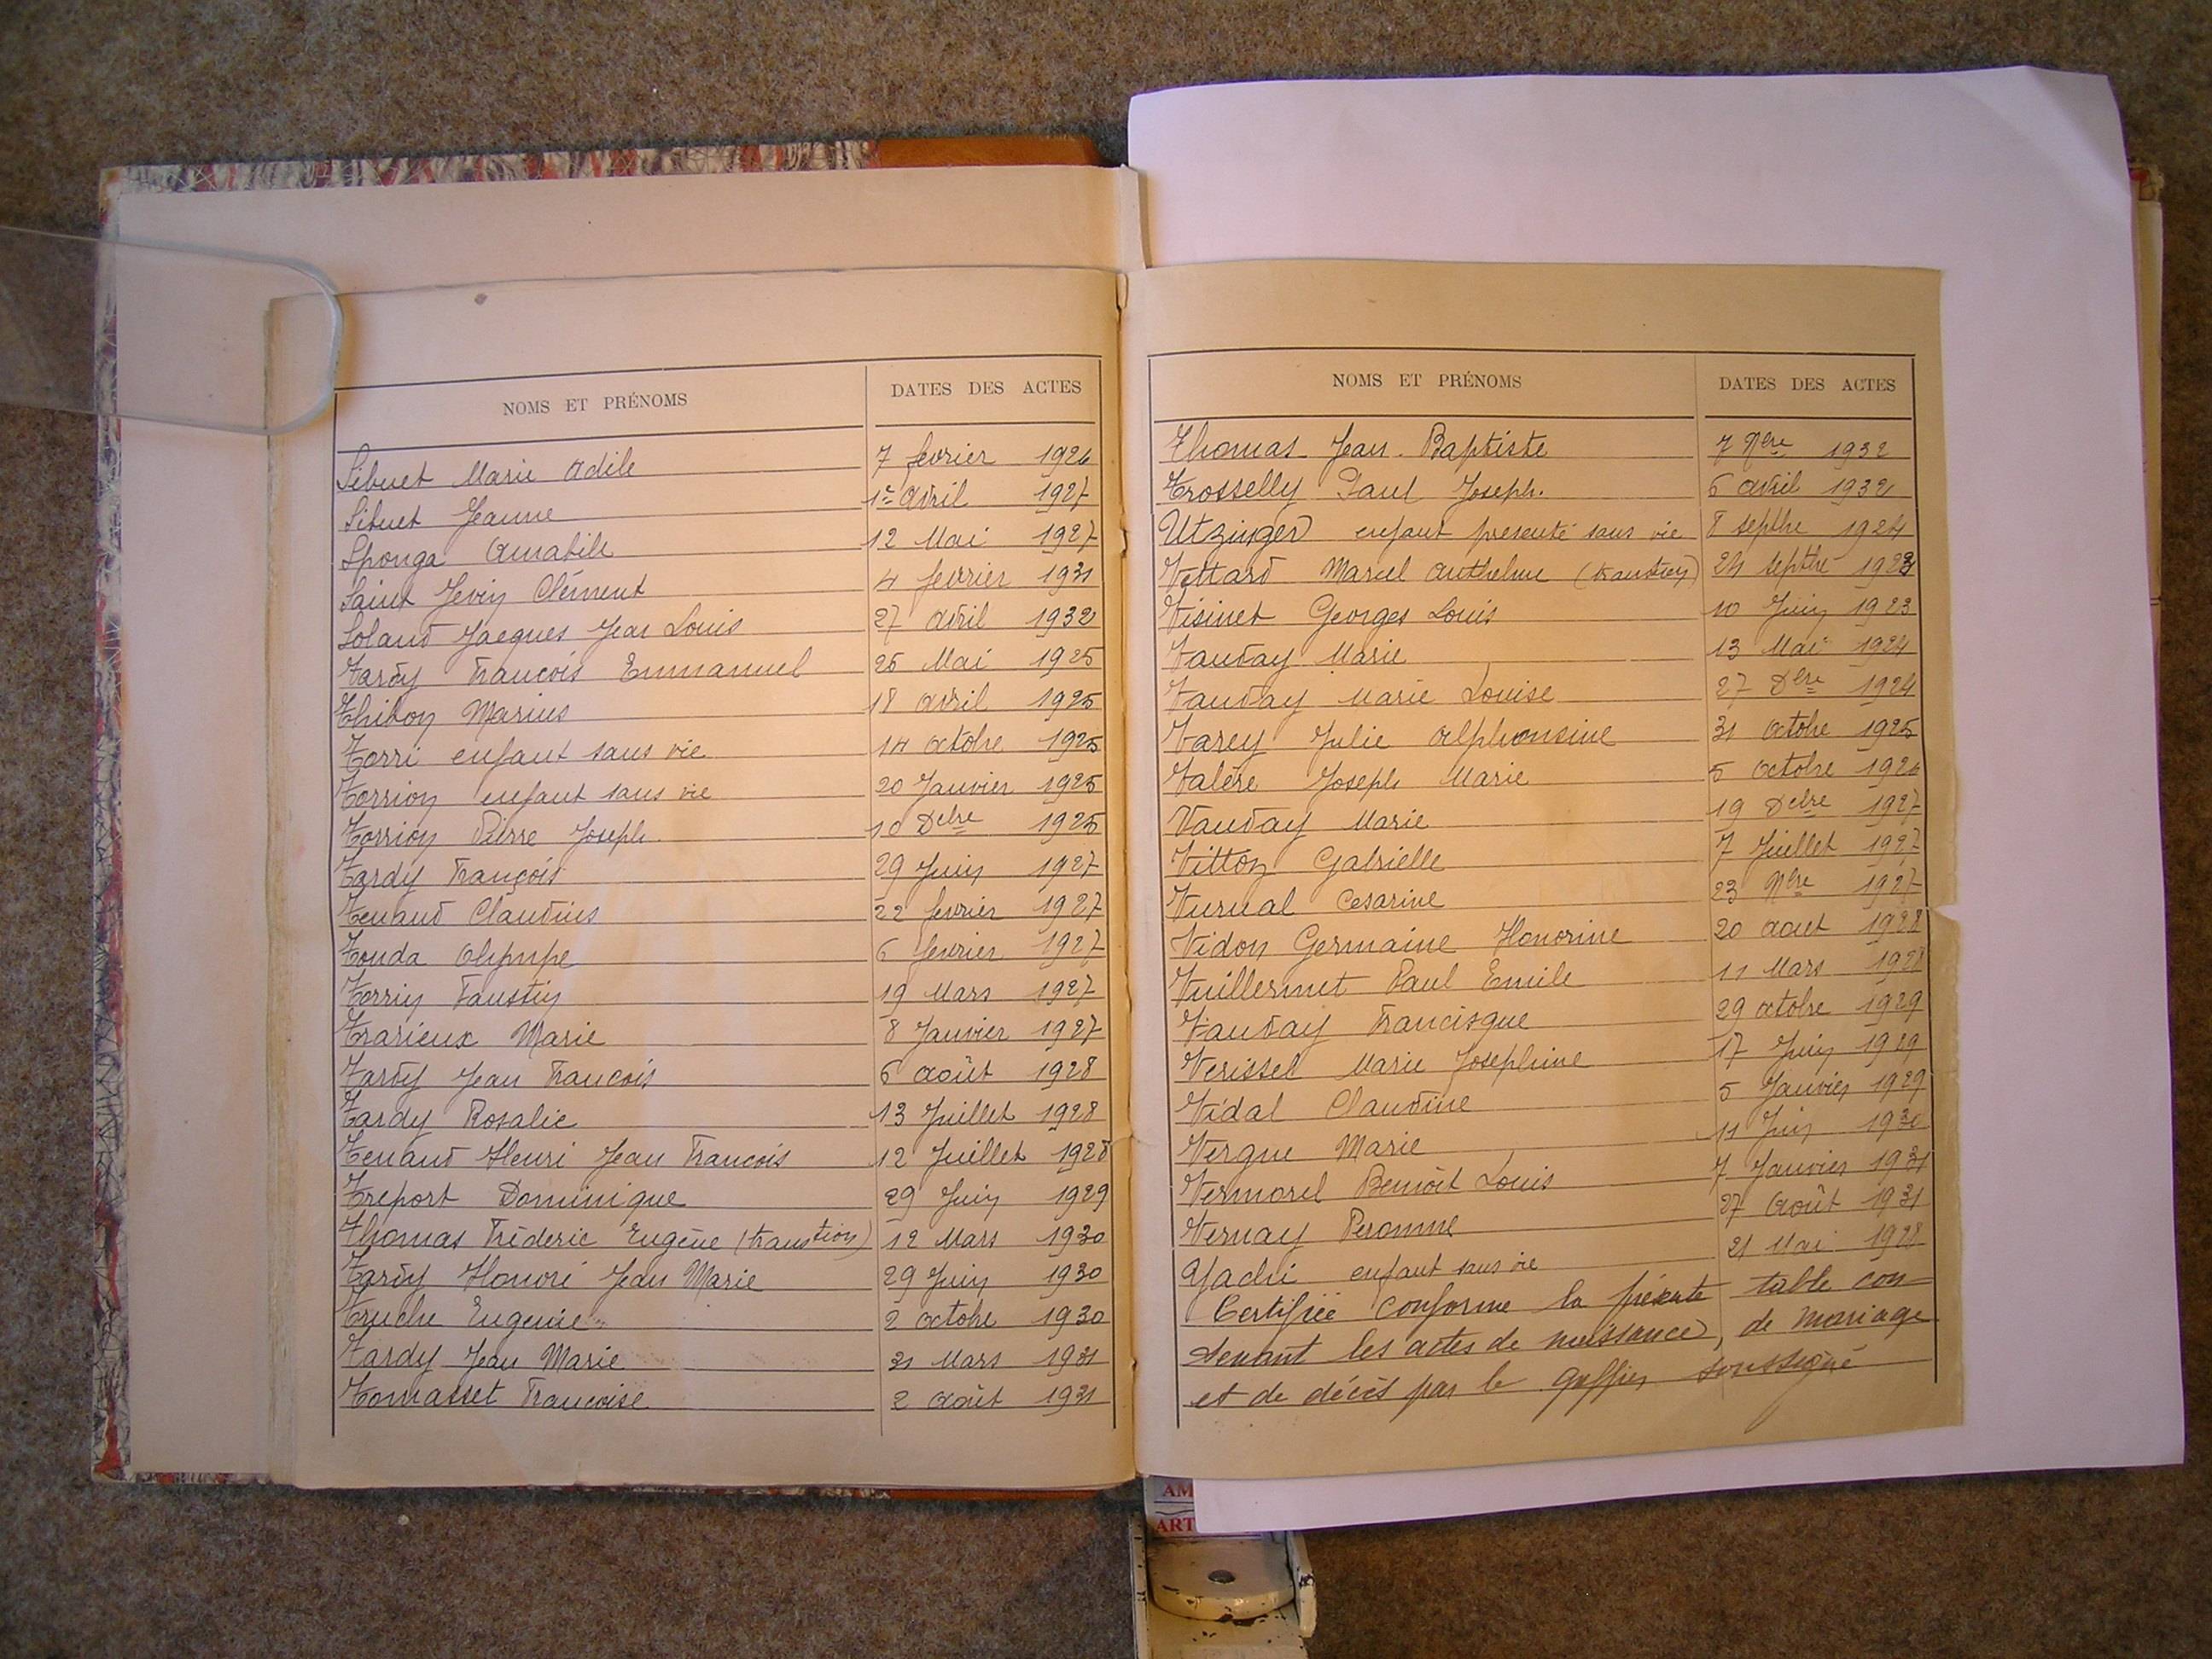 NOMS ET PRÉNOMS DATES DES ACTES
Sibuet Marie Adèle 7 fevrier 1926
Sibuet Jeanne 1er avril 1927
Sponga Amabile 12 Mai 1927
Saint Jevin Clément 4 fevrier 1931
Soland Jacques Jean Louis 27 avril 1932
Tardy François Emmanuel 25 Mai 1925
Thibon Marius 18 avril 1925
Torri enfant sans vie 14 octobre 1925
Torrion enfant sans vie 20 Janvier 1925
Torrion Pierre Joseph 10 Dcbre 1925
Tardy François 29 Juin 1927
Tenand Claudius 22 fevrier 1927
Touda Olympe 6 fevrier 1927
Torrin Faustin 19 Mars 1927
Trarieux Marie 8 Janvier 1927
Tardy Jean François 6 août 1928
Tardy Rosalie 13 Juillet 1928
Tenand Henri Jean François 12 Juillet 1928
Treport Dominique 29 Juin 1929
Thomas Fréderic Eugène (transtion) 12 Mars 1930
Tardy Honoré Jean Marie 29 Juin 1930
Truche Eugenie 2 octobre 1930
Tardy Jean Marie 31 Mars 1931
Tomasset Françoise 2 août 1931
NOMS ET PRÉNOMS DATES DES ACTES
Thomas Jean-Baptiste 7 Nbre 1932
Trosselly Paul Joseph. 6 avril 1932
Utzinger enfant presenté sans vie 8 septbre 1924
Vettard Marcel Anthelme (transtion) 24 septbre 1923
Visinet Georges Louis 10 Juin 1923
Vauday Marie 13 Mai 1924
Vauday Marie Louise 27 Dbre 1924
Varey Julie Alphonsine 31 octobre 1925
Valère Joseph Marie 5 octobre 1926
Vauday Marie 19 Dcbre 1927
Vitton Gabrielle 7 Juillet 1927
Vurual Cesarine 23 Nbre 1927
Vidon Germaine Honorine 20 aout 1928
Vuillermet Paul Emile 11 Mars 1928
Vauday Francisque 29 octobre 1929
Verissel Marie Josephine 17 Juin 1929
Vidal Claudine 5 Janvier 1929
Vergne Marie 11 Juin 1930
Vermorel Benoît Louis 7 Janvier 1931
Vernay Peronne 27 août 1931
Yachi enfant sans vie 21 Mai 1928
Certifiée conforme la présente table con-
tenant les actes de naissance, de mariage
et de décès par le greffier soussigné
AM
ART